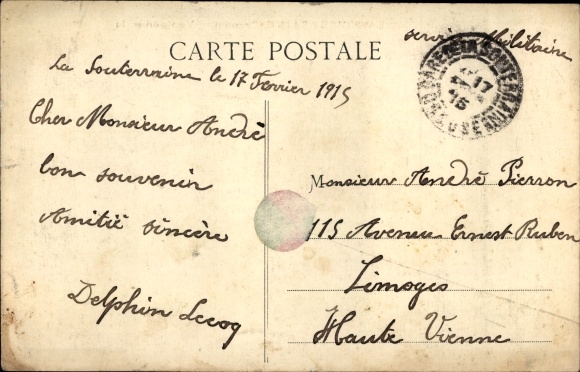 CARTE POSTALE
service Militaire
La Souterraine le 17 Fevrier 1915
Cher Monsieur André
bon souvenir
Amitié sincère
Delphin Lecoq
Monsieur André Pierron
115 Avenue Ernest Ruben
Limoges
Haute Vienne
GARE DE LA SOUTERRAINE
17
15
CREUSE